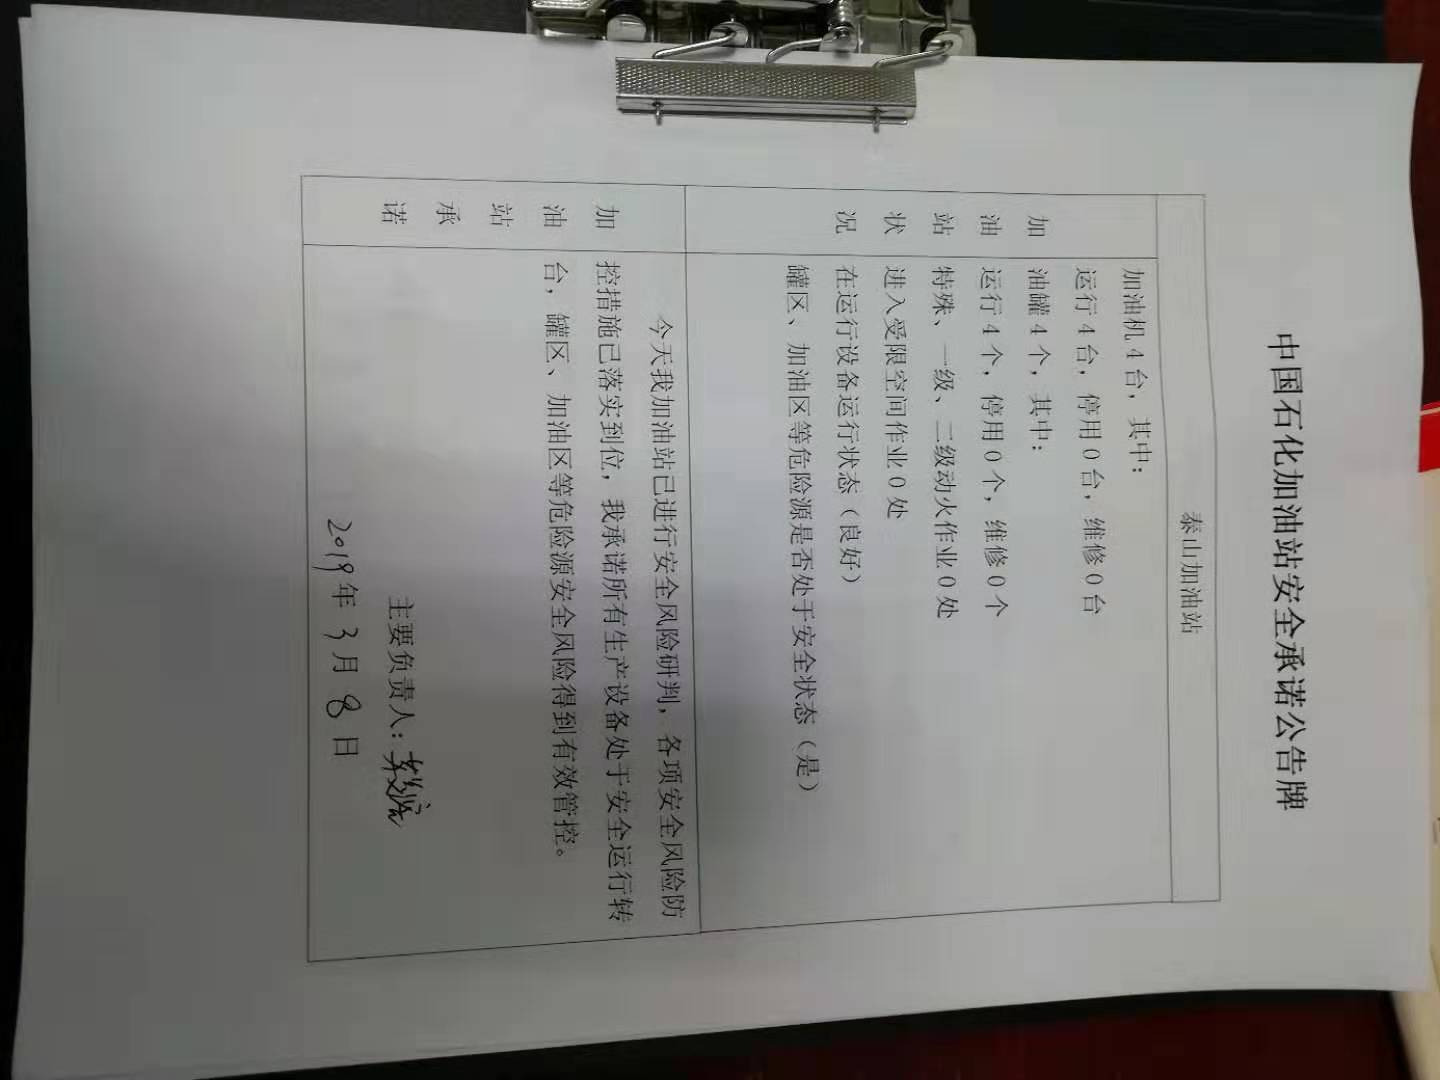 中国石化加油站安全承诺公告牌
泰山加油站
加油站状况
加油机4台，其中：
运行4台，停用0台，维修0台
油罐4个，其中：
运行4个，停用0个，维修0个
特殊、一级、二级动火作业0处
进入受限空间作业0处
在运行设备运行状态（良好）
罐区、加油区等危险源是否处于安全状态（是）
加油站承诺
今天我加油站已进行安全风险研判，各项安全风险防
控措施已落实到位，我承诺所有生产设备处于安全运行转
台，罐区、加油区等危险源安全风险得到有效管控。
主要负责人：
2019年3月8日